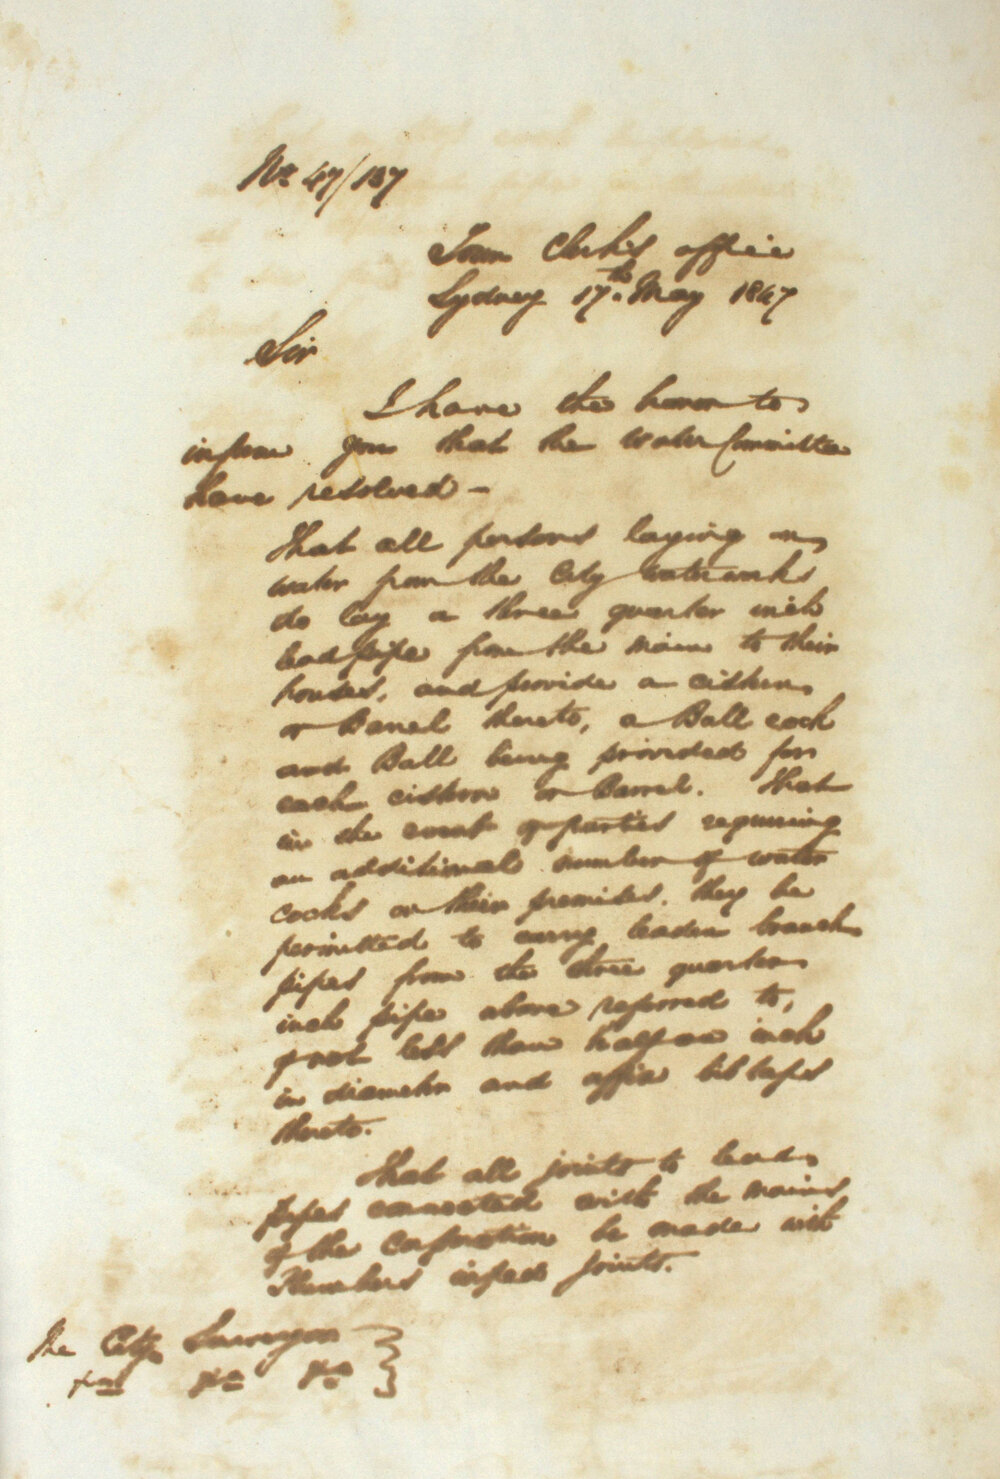 No 47/187
Town Clerk's office
Sydney 17th. May 1847
Sir
I have the honor to
inform you that the Water Committee
have resolved -
That all persons laying on
water from the City waterworks
do lay a three quarter inch
lead pipe from the main to their
houses, and provide a cistern
or Barrel thereto, a Ball cock
and Ball being provided for
each cistern or Barrel. That
in the event of parties requiring
an additional number of water
cocks on their premises, they be
permitted to carry leaden branch
pipes from the three quarter
inch pipe above referred to,
of not less than half an inch
in diameter and affix bib taps
thereto.
That all joints to lead
pipes connected with the mains
of the Corporation be made with
Plumbers wiped joints.
The City Surveyor